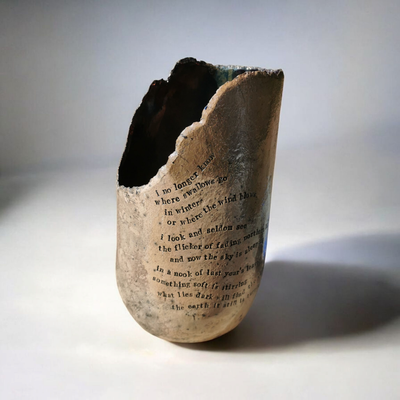 i no longer know
where swallows go
in winter
or where the wind
i look and seldom see
the flicker of fading
and now the sky is
in a nook of last year's
something soft is stirring
what lies dark
the earth is still